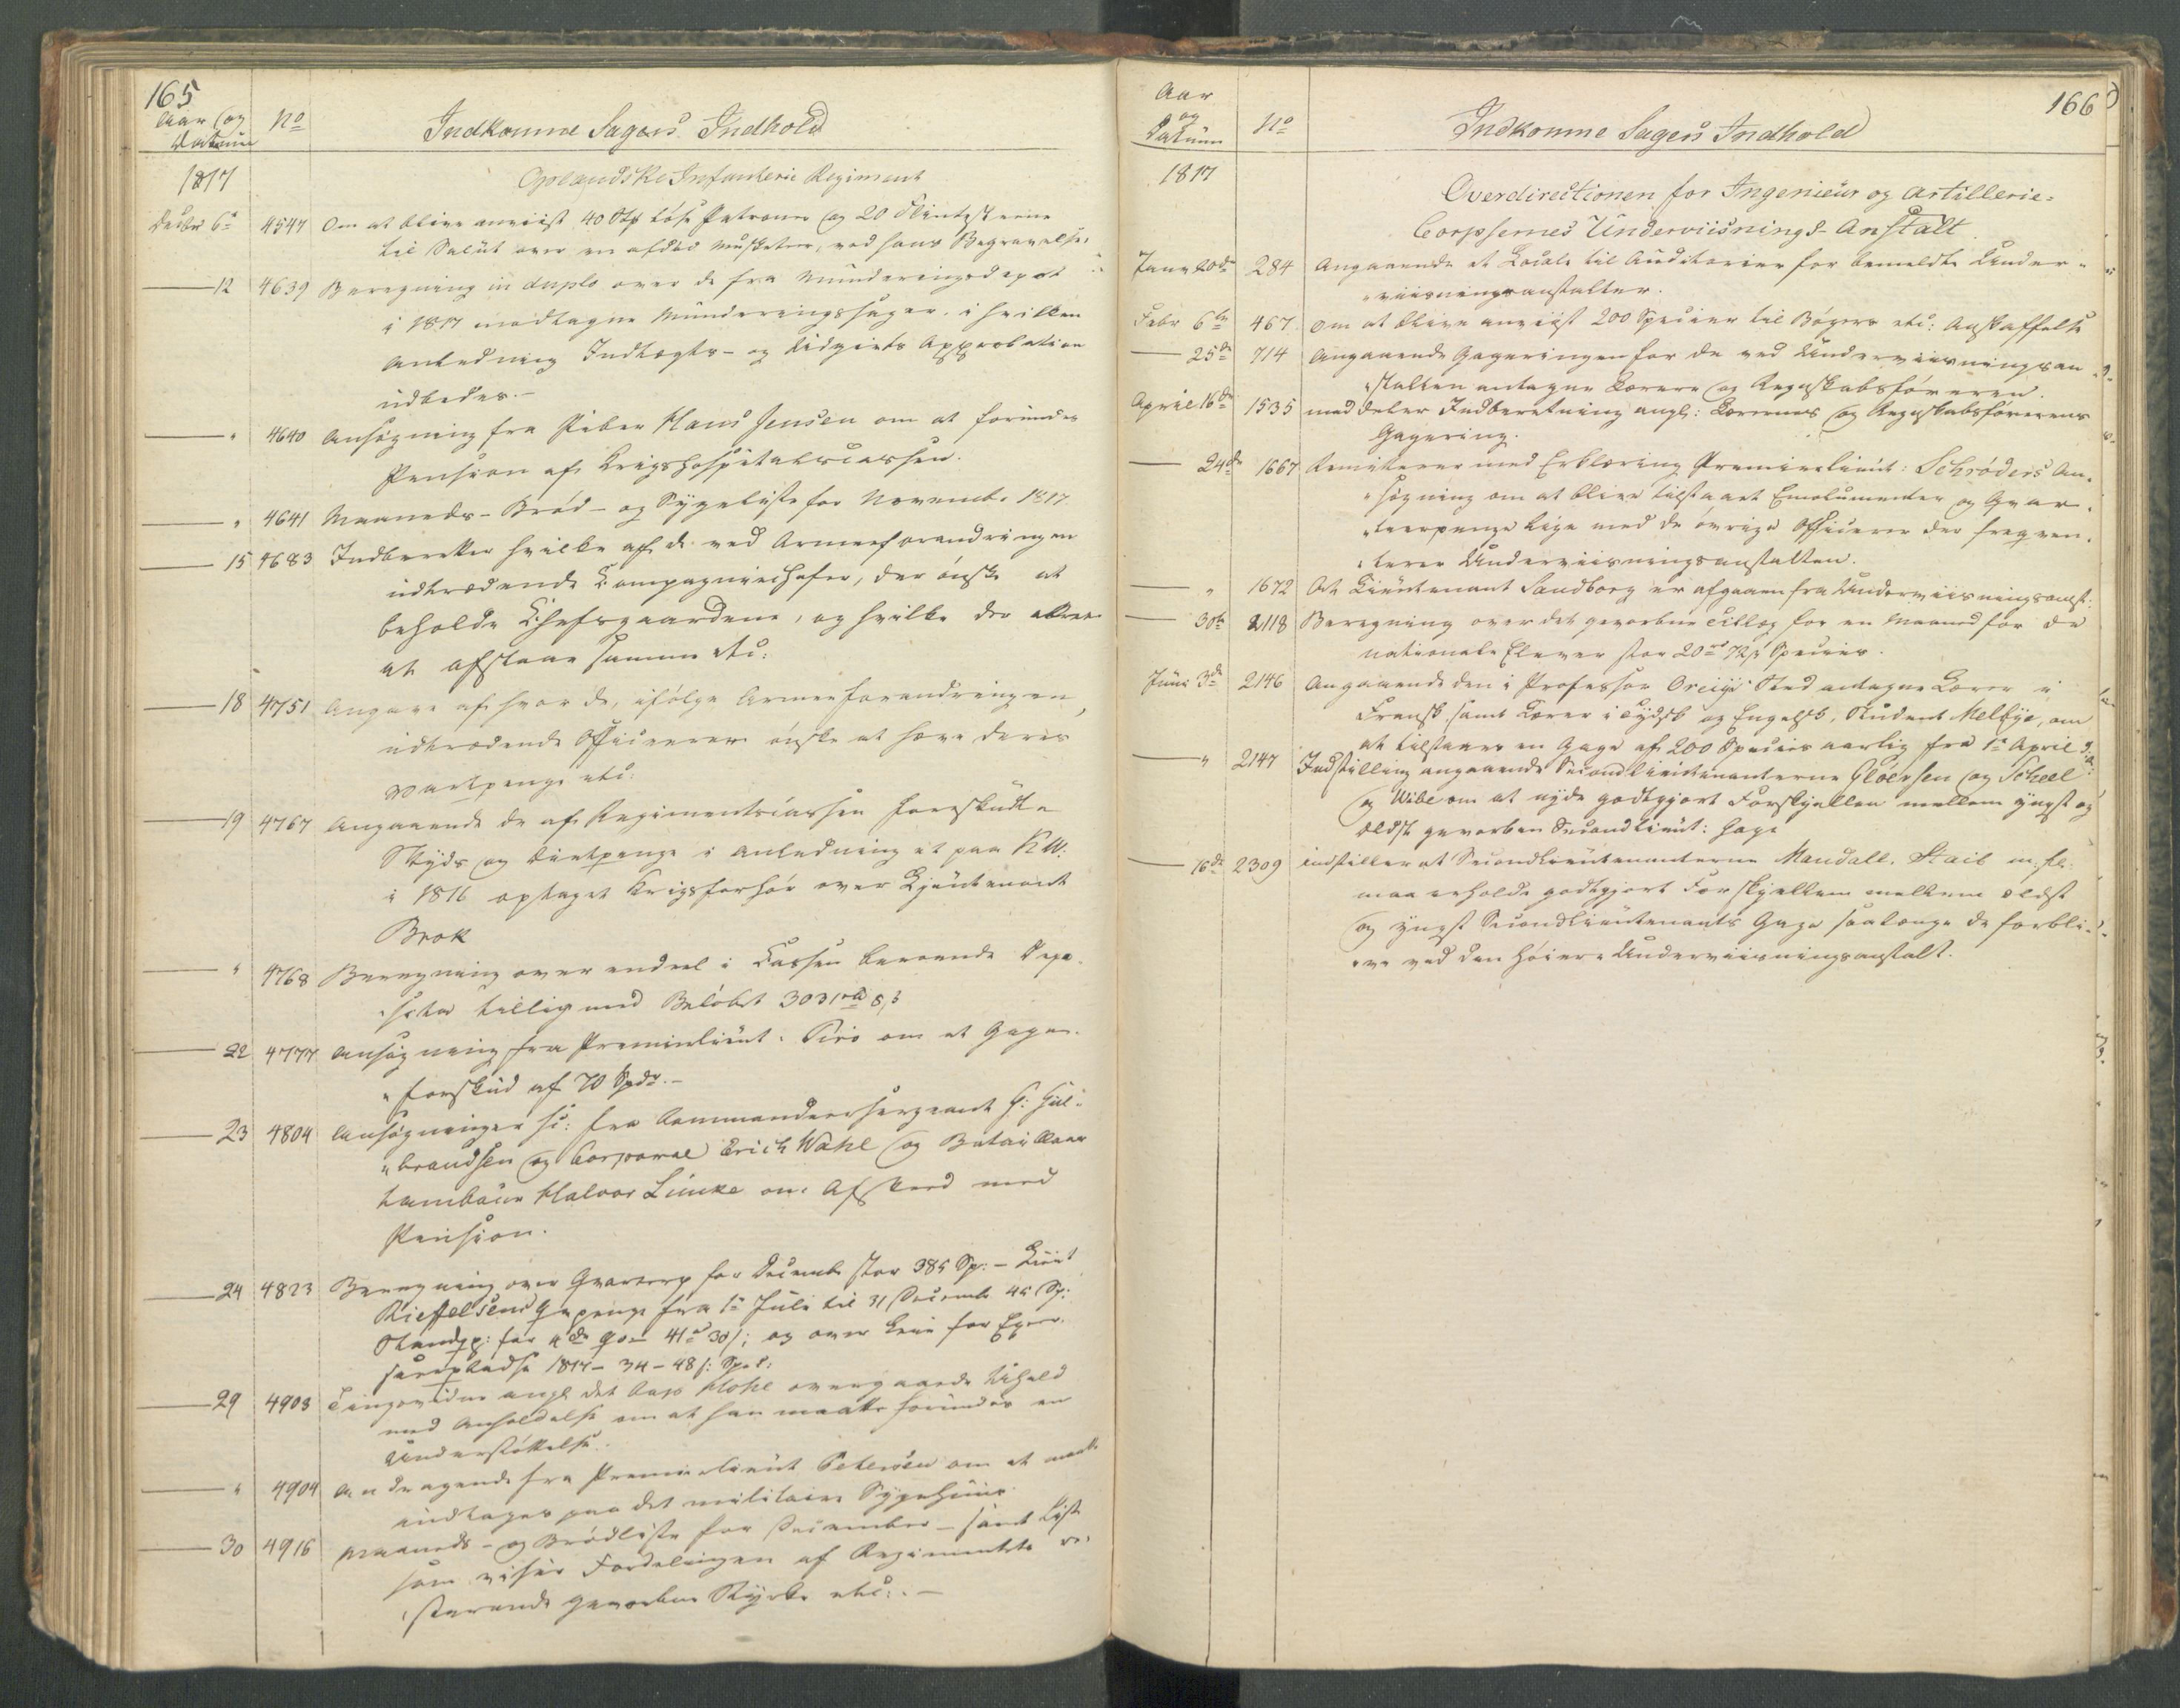 165
Aar og
Datum
No
Indkomne Sagers Indhold
1817
Oplandske Infanterie Regiment
Decbr 6te 4547 Om at blive anviist 40 Stk løse Patroner og 20 Flintesteene
til Salut over en afdød Musketeer, ved hans Begravelse.
— 12 4639 Beregning in duplo over de fra Munderingsdepot
i 1817 modtagne Munderingssager, i hvilken
Anledning Indtægts- og Udgivts Approbation
udbedes.—
— " 4640 Ansøgning fra Piber Hans Jensen om at forundes
Pension af Krigshospitalscassen.
— " 4641 Maaneds- Brød- og Sygeliste for Novemb. 1817
— 15 4683 Indberetter hvilke af de ved Armeeforandringen
udtrædende Compagniechefer, der ønske at
beholde Chefsgaardene, og hvilke der attraae
at afstaae samme etc:
— 18 4751 Opgave af hvor de, ifølge Armeeforandringen,
udtrædende Officierer ønske at hæve deres
Vartpenge etc:
— 19 4767 Angaaende de af Regimentscassen forskudte
Skyds og Diætpenge i Anledning et paa KW:
i 1816 optaget Krigsforhør over Lieutenant
Brok
— " 4768 Beregning over endeel i Cassen beroende Depo-
"sita tillig med Beløbet 3031rd 8s
— 22 4777 Ansøgning fra Premierlieut: Piro om et Gage-
"forskud af 70 Spdr.—
— 23 4804 Ansøgninger sc: fra Commandeersergeant H: Gul-
"brandsen og Corporal Erich Wahl og Bataillons
tambour Halvor Linke om Afskeed med
Pension.
— 24 4823 Beregning over Qvarterp for Decemb stor 385 Sp:— Lieut
Rieffelsens penge fra 1te Juli til 31 Decemb 45 Sp:
for 4de 41 30s; og over Leie for Exer-
"serepladse 1817 — 34 — 48s: Sp.
— 29 4903 Tingsvidne angl det Corp Hohl overgaaede Uheld
med Anholdelse om at han maatte forundes en
Understøttelse.
— " 4904 Andragende fra Premierlieut Petersen om at maatte
indtages paa det militaire Sygehuus.
— 30 4916 Maaneds- og Brødliste for December — samt Liste
som viser Fordelingen af Regimentets 
"sterende gevorbne Styrke etc:.—
Aar
og
Datum
No
Indkomne Sagers Indhold
166
1817
Overdirectionen for Ingenieur og Artillerie-
Corpsernes Underviisnings-Anstalt
Janr 20de 284 Angaaende et Locale til Auditorier for bemeldte Under-
"viisningsanstalter.
Febr 6te 467 Om at blive anviist 200 Specier til Bøgers etc: Anskaffelse
— 25de 714 Angaaende Gageringen for de ved Underviisningsan-
"stalten antagne Lærere og Regnskabsføreren.
April 16de 1535 meddeler Indberetning angl: Lærernes og Regnskabsførerens
Gagering.
— 24de 1667 Remitterer med Erklæring Premierlieut: Schrøders An-
"søgning om at blive tilstaaet Emolumenter og Qvar-
"teerpenge lige med de øvrige Officierer der freqven-
"terer Underviisningsanstalten.
— " 1672 At Lieutenant Sandborg er afgaaen fra Underviisningsanst:
— 30te 2118 Beregning over det gevorbne Tillæg for en Maaned for de
nationale Elever stor 20rd 72s Specier.
Juni 3de 2146 Angaaende den i Professor Sted antagne Lærer i
Fransk, samt Lærer i Tydsk og Engelsk, Student Melbye, om
at tilstaaes en Gage af 200 Species aarlig fra 1te April
— " 2147 Indstilling angaaende Secondlieutenanterne Gløersen og Scheel
og Wibe om at nyde godtgjort Forskjellen mellem yngst og
ældst gevorben Secondlieut: Gage
— 16de 2309 indstiller at Secondlieutenanterne Mandall, Stail m: fl:
maa erholde godtgjort Forskjellen mellem ældst
og yngst Secondlieutenants Gage saalænge de forbli-
"ve ved den høiere Underviisningsanstalt.